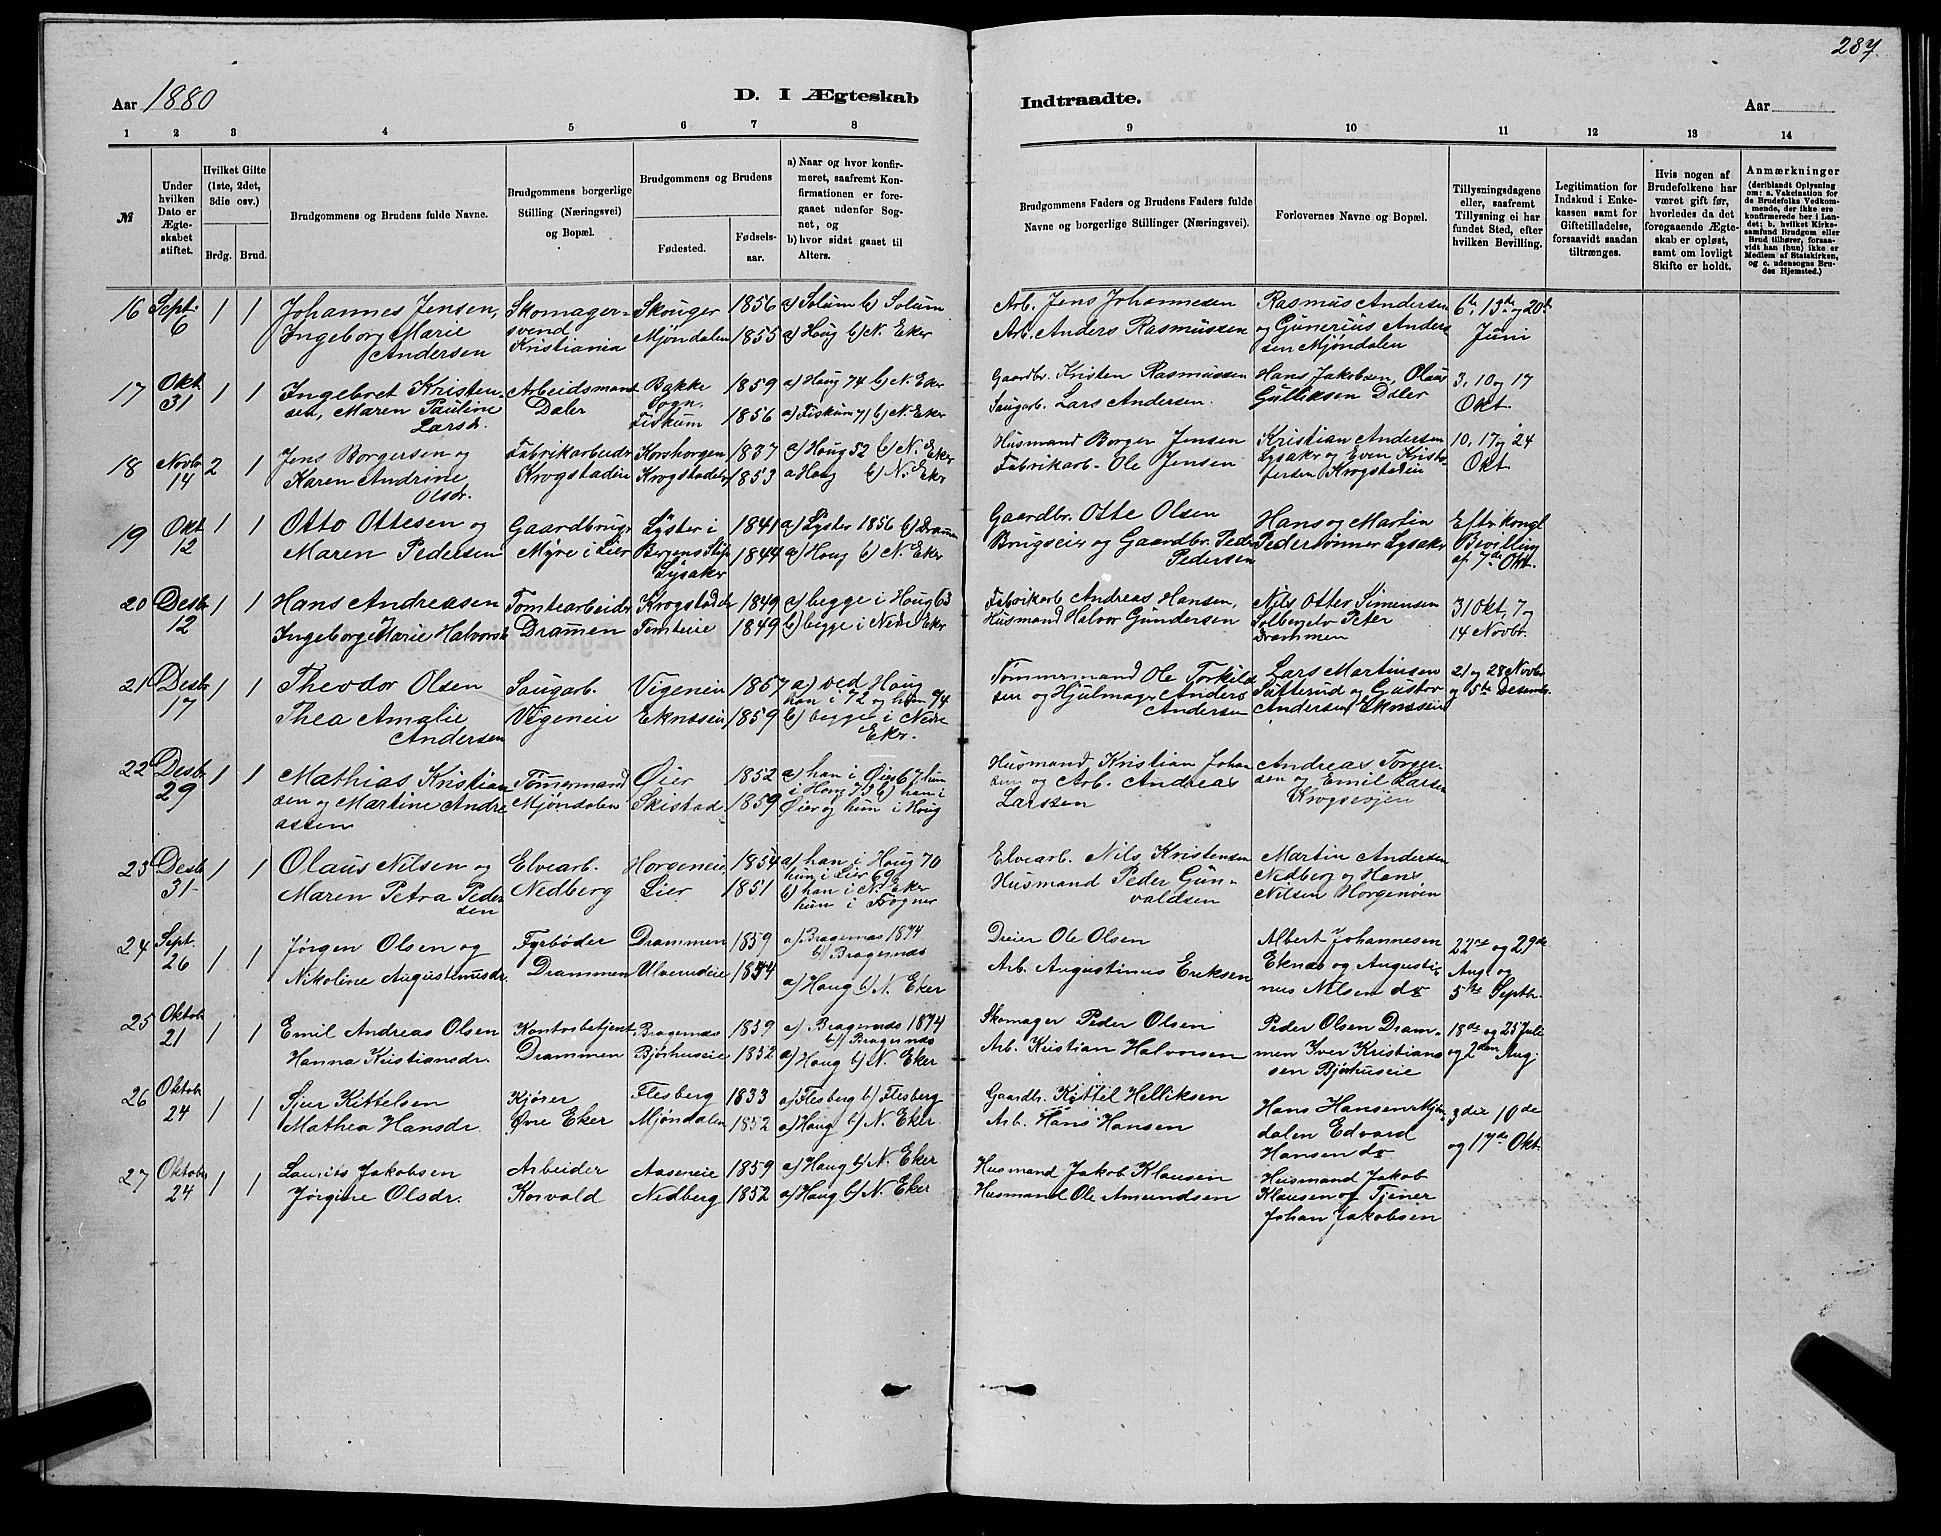 287
Aar 1880
D. I Ægteskab
Indtraadte.
Aar
1 2 3 4 5 6 7 8
9 10 11 12 13 14
№
Under hvilken Dato er Ægteskabet stiftet.
Hvilket Gifte (1ste, 2det, 3die osv.)
Brdg. Brud.
Brudgommens og Brudens fulde Navne.
Brudgommens borgerlige Stilling (Næringsvei) og Bopæl.
Brudgommens og Brudens
Fødested.
Fødselsaar.
a) Naar og hvor konfirmeret, saafremt Konfirmationen er foregaaet udenfor Sognet, og
b) hvor sidst gaaet til Alters.
Brudgommens Faders og Brudens Faders fulde Navne og borgerlige Stillinger (Næringsvei).
Forlovernes Navne og Bopæl.
Tillysningsdagene eller, saafremt Tillysning ei har fundet Sted, efter hvilken Bevilling.
Legitimation for Indskud i Enkekassen samt for Giftetilladelse, forsaavidt saadan tiltrænges.
Hvis nogen af Brudefolkene har været gift før, hvorledes da det foregaaende Ægteskab er opløst, samt om lovligt Skifte er holdt.
Anmærkninger
(deriblandt Oplysning om: a. Vakcination for de Brudefolks Vedkommende, der ikke ere konfirmerede her i Landet; b. hvilket Kirkesamfund Brudgom eller Brud tilhører, forsaavidt han (hun) ikke er Medlem af Statskirken, og c. udensogns Brudes Hjemsted.)
16 Sept. 6 1 1 Johannes Jensen, Skomager- Skouger 1856 a) Solum b) Solum Arb. Jens Johannesen Rasmus Andersen 6te, 13de og 20de
Ingeborg Marie Andersen svend Kristiania Mjøndalen 1855 a) Houg b) N. Eker Arb. Anders Rasmussen og Gunerius Andersen Mjøndalen Juni
17 Okt 31 1 1 Ingebret Kristen- Arbeidsmand Bakke Sogn. 1859 a) Houg 74 b) N. Eker Gaardbr. Kristen Rasmussen Hans Jakobsen, Olaus 3, 10 og 17
sen, Maren Pauline Larsdr. Daler Fiskum 1856 a) Fiskum 71 b) N. Eker Saugarb. Lars Andersen. Gulliksen Daler Okt.
18 Novbr 14 2 1 Jens Borgersen og Fabrikarbeider Korshorgen 1837 a) Houg 52 b) N. Eker Husmand Borger Jensen Kristian Andersen 10, 17 og 24
Karen Andrine Olsdr. Krogstadeie Krogstadeie 1853 a Houg b) N. Eker Fabrikarb. Ole Jensen Lysaker og Even Kristofersen Krogstadeie Okt.
19 Okt 12 1 1 Otto Ottesen og Gaardbruger Lyster i Bergens Stift 1841 a) Lyster 1856 b) Drammen Gaardbr. Otte Olsen Hans og Martin Efter kongl
Maren Pedersen Myre i Lier Lysaker 1844 a) Houg b) N. Eker Brugseier og Gaardbr. Peder Pedersen Pedersønner Lysaker Bevilling af 7de Okt.
20 Desbr 12 1 1 Hans Andreasen Tomtearbeider Krogstadeie 1849 a) begge i Houg 63 Fabrikarb Andreas Hansen, Nils Otter Simensen 31 Okt, 7 og
Ingeborg Marie Halvorsd Drammen Tomteeie 1849 b) begge i Nedre Eker Husmand Halvor Gundersen Solbergelv Peter Drammen 14 Novbr.
21 Desbr 17 1 1 Theodor Olsen Saugarb. Vigeneie 1857 a) ved Houg han i 72 og hun 74 Tømmermand Ole Torkild Lars Martinsen 21 og 28 Novbr
Thea Amalie Andersen Vigeneie Eknæseie 1859 b) begge i Nedre Eker. sen og Hjulmager Anders Andersen Sætterud og Gustav Andersen Eknæseie og 5te Desembr.
22 Desbr 29 1 1 Mathias Kristian Tømmermand Øier 1852 a) han i Øier 67 hun i Houg 73 b) han i Husmand Kristian Johan Andreas Torger
sen og Martine Andreassen Mjøndalen Skistad 1859 Øier og hun i Houg sen og Arb. Andreas Larssen sen og Emil Larsen Krogsvojen
23 Desbr 31 1 1 Olaus Nilsen og Elvearb. Horgeneie 1854 a) han i Houg 70 hun i Lier 69 Elvearb. Nils Kristensen Martin Andersen
Maren Petra Pedersen Nedberg Lier 1851 b) han i N. Eker hun i Frogner Husmand Peder Gunvaldsen Nedberg og Hans Nilsen Horgenøien
24 Sept. 26 1 1 Jørgen Olsen og Fyrbøder Drammen 1859 a) Bragernæs 1874 b) Bragernæs Dreier Ole Olsen Albert Johannesen 22de og 29de
Nikoline Augustinusdr. Drammen Ulverudeie 1854 a) Houg b) N. Eker Arb. Augustinus Eriksen Eknæs og Augustinus Nilsen do Aug. og 5te Septbr.
25 Oktobr 21 1 1 Emil Andreas Olsen Kontorbetjent Bragernæs 1859 a) Bragernæs 1874 b) Bragernæs Skomager Peder Olsen Peder Olsen Dram- 18de og 25 Juli
Hanna Kristiansdr. Drammen Bjørhuseie 1852 a) Houg b) N. Eker Arb. Kristian Halvorsen men Iver Kristiansen Bjørhuseie og 2den Aug.
26 Oktobr 24 1 1 Sjur Kittelsen Kjører Flesberg 1833 a) Flesberg b) Flesberg Gaardbr. Kittel Helliksen Hans Hansen Mjøn- 3die 10de
Mathea Hansdr. Øvre Eker Mjøndalen 1852 a) Houg b) N. Eker. Arb. Hans Hansen dalen Edvard Hansen do og 17de Okt.
27 Oktobr 24 1 1 Laurits Jakobsen Arbeider Aaseneie 1859 a) Houg b) N. Eker Husmand Jakob Klausen Husmand Jakob
Jørgine Olsdr. Korvald Nedberg 1852 a) Houg b) N. Eker Husmand Ole Amundsen Klausen og Tjener Johan Jakobsen